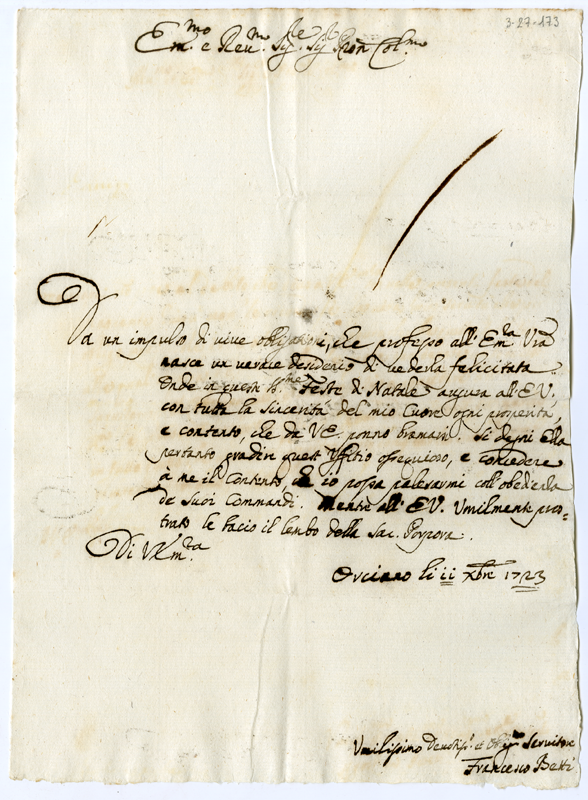 3-27-173
Em.mo e Rev.mo Sig.re Sig.r Pron Col.mo
Da un impulso di vive obligationi, che professo all'Em.za V'ra
nasce un verace desiderio di vederla felicitata.
Onde in queste S.me Feste di Natale auguro all'E.V.
con tutta la sincerità del mio Cuore ogni prosperità,
e contento, che da V.E. ponno bramarsi. Si degni Ella
pertanto gradire quest'Uffitio ossequioso, e concedere
à me il Contento, che io possa palesarmi coll'obedienza
de Suoi Commandi. Mentre all'E.V. Umilmente pros=
trato le bacio il lembo della Sac. Porpora.
Di V. Em.za
Orciano li 11 Xbre 1723
Umilissimo Devotiss.o et Servitore
Francesco Betti